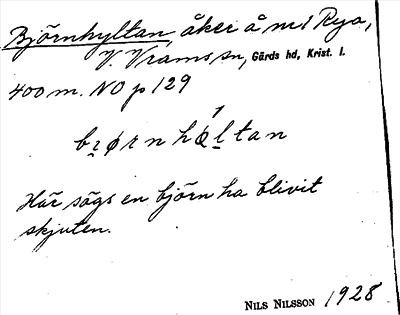 Björnhyltan, åker å nr 1 Rya,
V. Vrams sn, Gärds hd, Krist. l.
400 m. NO p 129
bɪørnhøltan
Här sägs en björn ha blivit
skjuten.
NILS NILSSON 1928